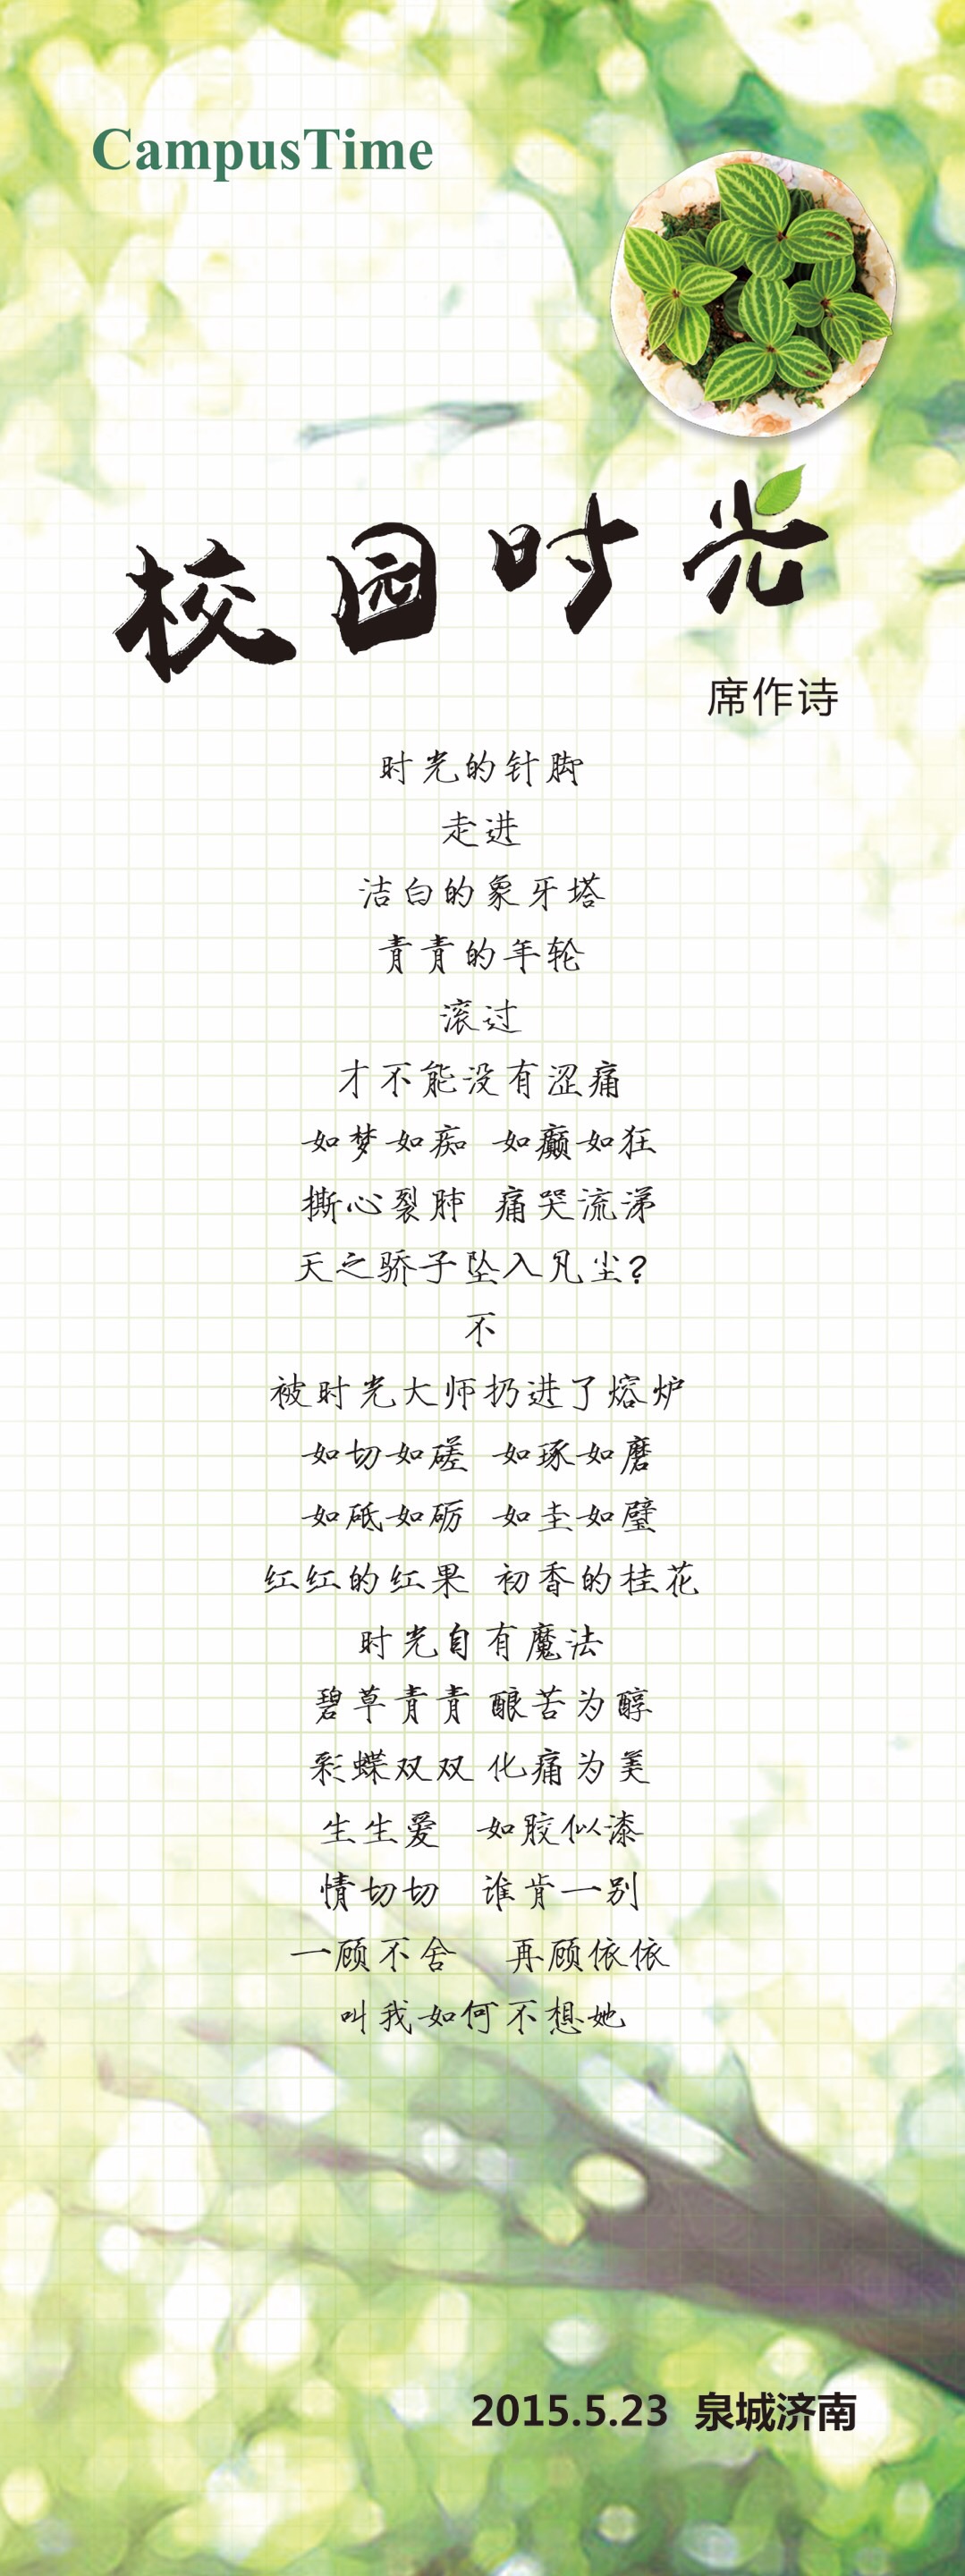 CampusTime
校园时光
席作诗
时光的针脚
走进
洁白的象牙塔
青青的年轮
滚过
才不能没有涩痛
如梦如痴 如癫如狂
撕心裂肺 痛哭流涕
天之骄子坠入凡尘?
不
被时光大师扔进了熔炉
如切如磋 如琢如磨
如砥如砺 如圭如璧
红红的红果 初香的桂花
时光自有魔法
碧草青青 酿苦为醇
彩蝶双双 化痛为美
生生爱 如胶似漆
情切切 谁肯一别
一顾不舍 再顾依依
叫我如何不想她
2015.5.23 泉城济南